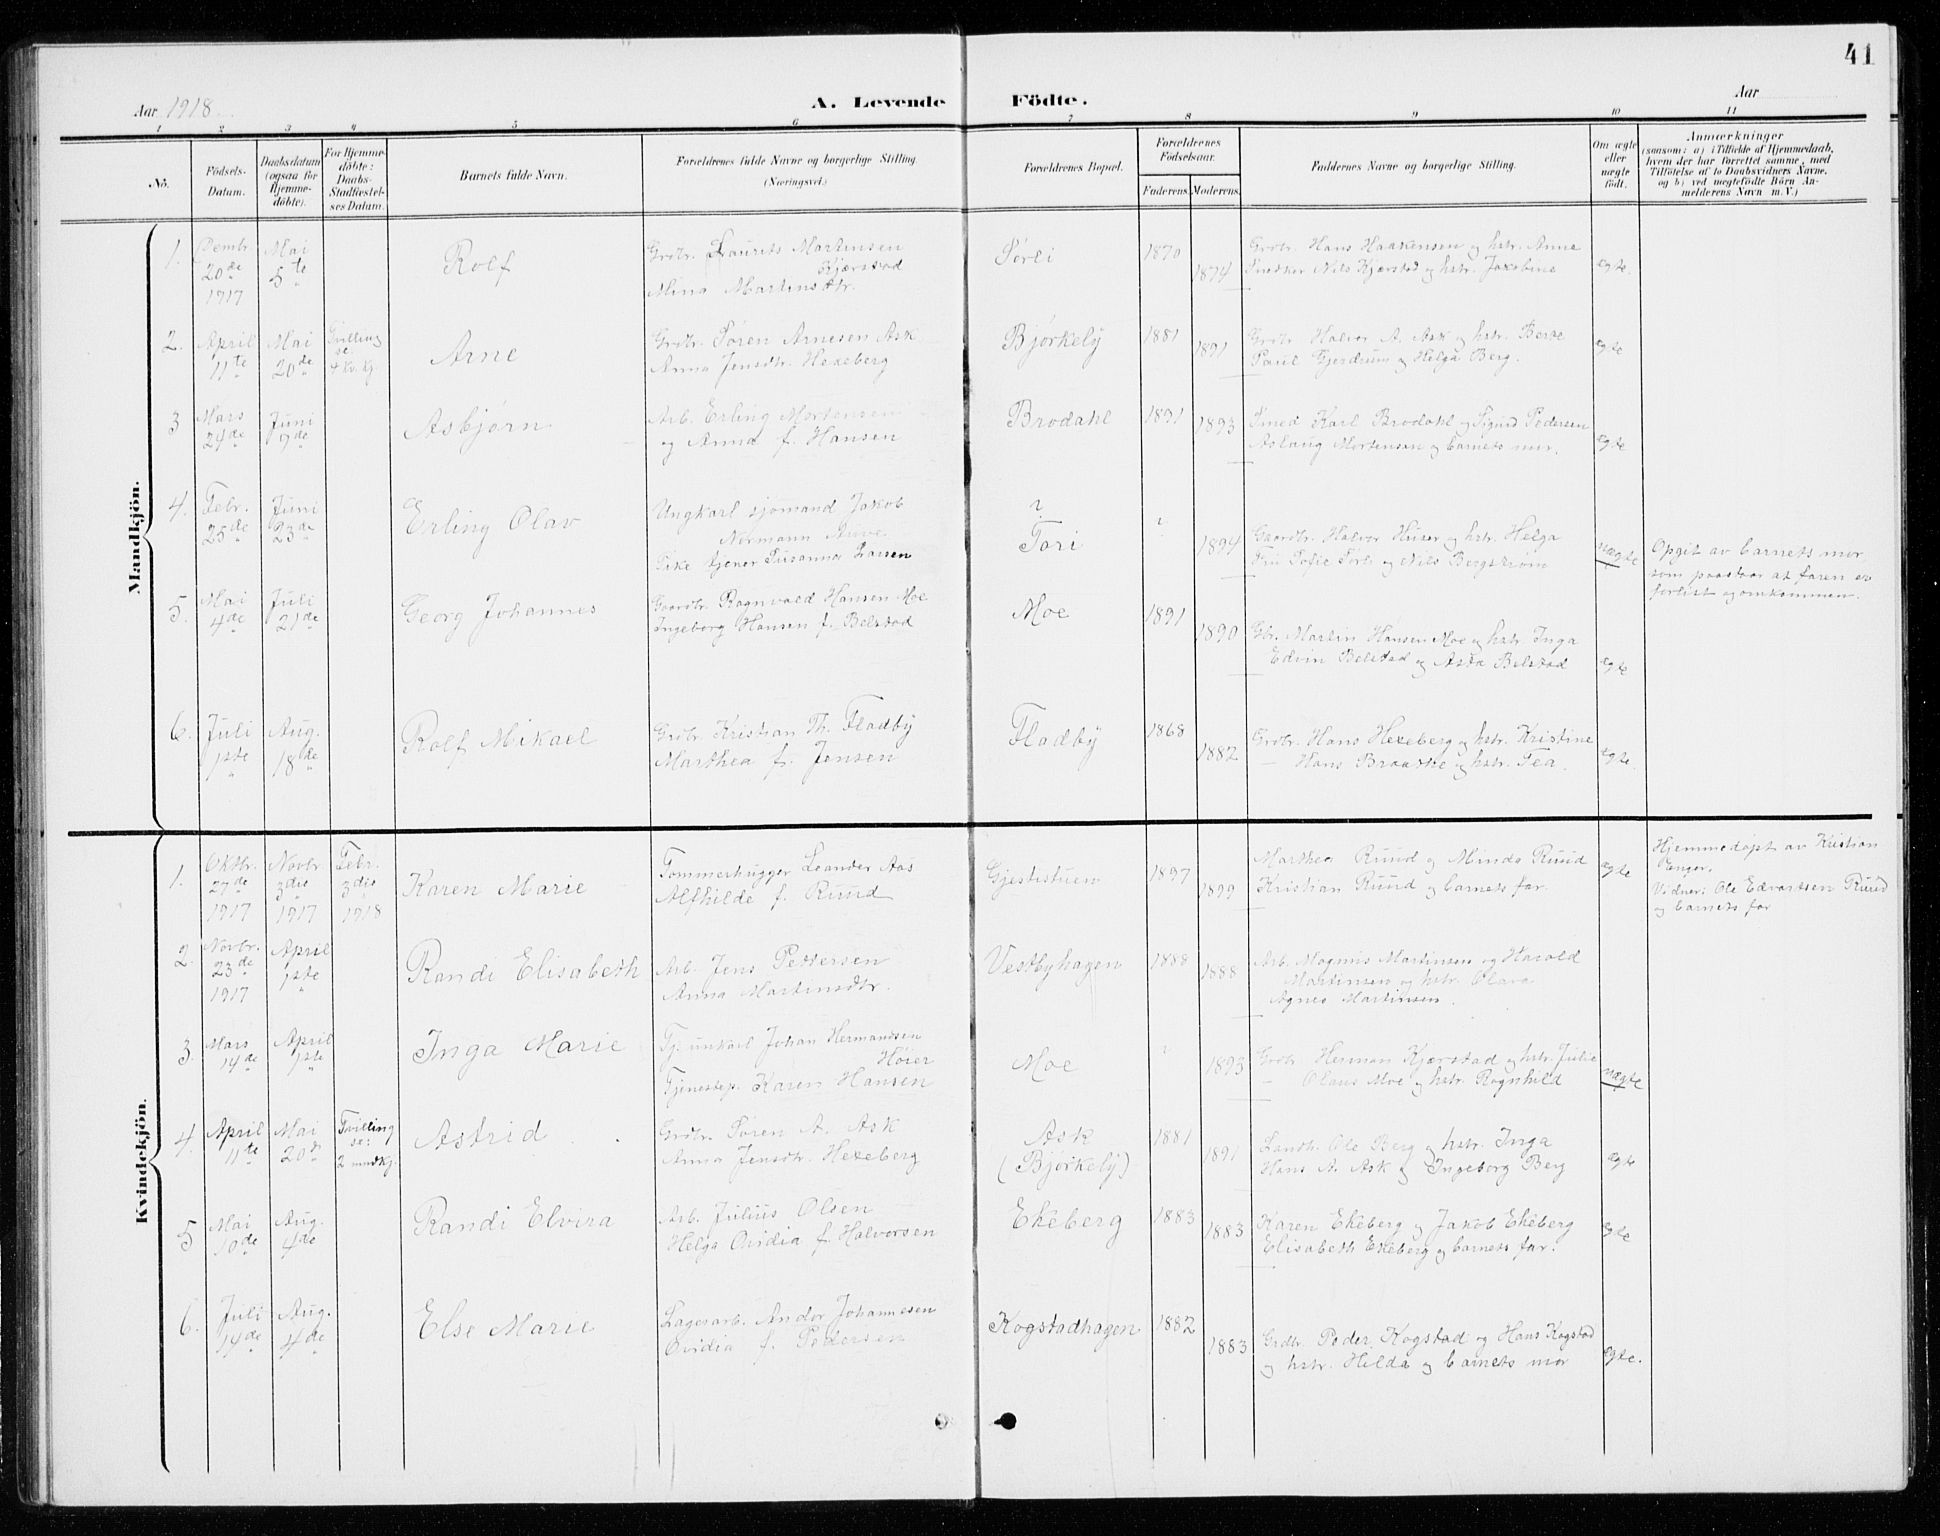 41
Aar 1918
A. Levende Födte.
Aar
1 2 3 4 5 6 7 8 9 10 11
No.
Födsels-
Datum.
Daabsdatum
(ogsaa for
Hjemme-
döbte).
For Hjemme-
döbte:
Daabs-
Stadfæstel-
ses Datum.
Barnets fulde Navn.
Forældrenes fulde Navne og borgerlige Stilling.
(Næringsvei.)
Forældrenes Bopæl.
Forældrenes
Födselsaar.
Faderens. Moderens.
Faddernes Navne og borgerlige Stilling.
Om ægte
eller
uægte
födt.
Anmærkninger
(saasom: a) i Tilfælde af Hjemmedaab,
hvem der har forrettet samme, med
Tilföielse af to Daabsvidners Navne,
og b) ved uægtefödte Börn An-
melderens Navn m. V.)
Mandkjön.
1. Dembr. 20de 1917
Mai 5te
Rolf
Grdbr. Laurits Martinsen
Kjærstad
Mina Martinsdtr.
Sørli
1870
1874
Grdbr. Hans Haakensen og hstr. Anne
Snedker Nils Kjærstad og hstr. Jakobine
ægte.
2. April 11te
Mai 20de
Tvilling
se:
4 kv. kj.
Arne
Grdbr. Søren Arnesen Ask
Anna Jensdtr. Hexeberg
Bjørkely
1881
1891
Grdbr. Halvor A. Ask og hstr. Berte
Paul Gjerdrum og Helga Berg.
ægte
3 Mars 24de
Juni 9de
Asbjørn
Arb. Erling Mortensen
og Anna f. Hansen
Brodahl
1891
1893
Smed Karl Brodahl og Sigrid Pedersen
Aslaug Mortensen og barnets mor.
ægte
4. Febr. 25de
Juni 23de
Erling Olav
Ungkarl sjømand Jakob
Normann
Pike tjener Susanna Larsen
?
Tori
?
1894
Gaardbr. Halvor Huser og hstr. Helga
Fru Sofie Sørli og Nils Bergstrøm
uægte
Opgit av barnets mor
som paastaar at faren er
forlist og omkommen.
5. Mai 4de
Juli 21de
Georg Johannes
Gaardbr. Ragnvald Hansen Moe
Ingeborg Hansen f. Belstad
Moe
1891
1890
Gbr. Martin Hansen Moe og hstr. Inga
Edvin Belstad og Asta Belstad
ægte
6. Juli 1ste
Aug. 18de
Rolf Mikael
Grdbr. Kristian Th. Fladby
Marthea f. Jensen
Fladby
1868
1882
Grdbr. Hans Hexeberg og hstr. Kristine
— Hans Braathe og hstr. Tea.
ægte.
Kvindekjön.
1. Oktbr. 27de 1917
Novbr. 3die 1917
Febr. 3die 1918
Karen Marie
Tømmerhugger Leander Aas
Alfhilde f. Ruud
Gjestistuen
1897
1899
Marthea Ruud og Minda Ruud
Kristian Ruud og barnets far.
ægte
Hjemmedøpt av Kristian
Enger.
Vidner: Ole Edvartsen Ruud
og barnets far
2. Novbr. 23de 1917
April 1ste
Randi Elisabeth
Arb. Jens Pettersen
Anna Martinsdtr.
Vestbyhagen
1888
1888
Arb. Magnus Martinsen og Harald
Martinsen og hstr. Olava
Agnes Martinsen.
3. Mars 14de
April 1ste
Inga Marie
Tj. unkarl Johan Hermandsen
Høier
Tjenestep. Karen Hansen
Moe
?
1893
Grdbr Herman Kjærstad og hstr. Julie
— Olaus Moe og hstr. Ragnhild
uægte
4. April 11te
Mai 20de
Tvilling
se:
2 mndkj.
Astrid
Grdbr. Søren A. Ask
Anna Jensdtr. Hexeberg
Ask
(Bjørkely)
1881
1891
Landh. Ole Berg og hstr. Inga
Hans A. Ask og Ingeborg Berg
ægte
5 Mai 10de
Aug. 4de
Randi Elvira
Arb. Julius Olsen
Helga Ovidia f. Halvorsen
Ekeberg
1883
1883
Karen Ekeberg og Jakob Ekeberg
Elisabeth Ekeberg og barnets far.
ægte
6. Juli 14de
Aug. 4de
Else Marie
Lagerarb. Andor Johannesen
Ovidia f. Pedersen
Kogstadhagen
1882
1883
Grdbr. Peder Kogstad og Hans Kogstad
og hstr. Hilda og barnets mor
ægte.